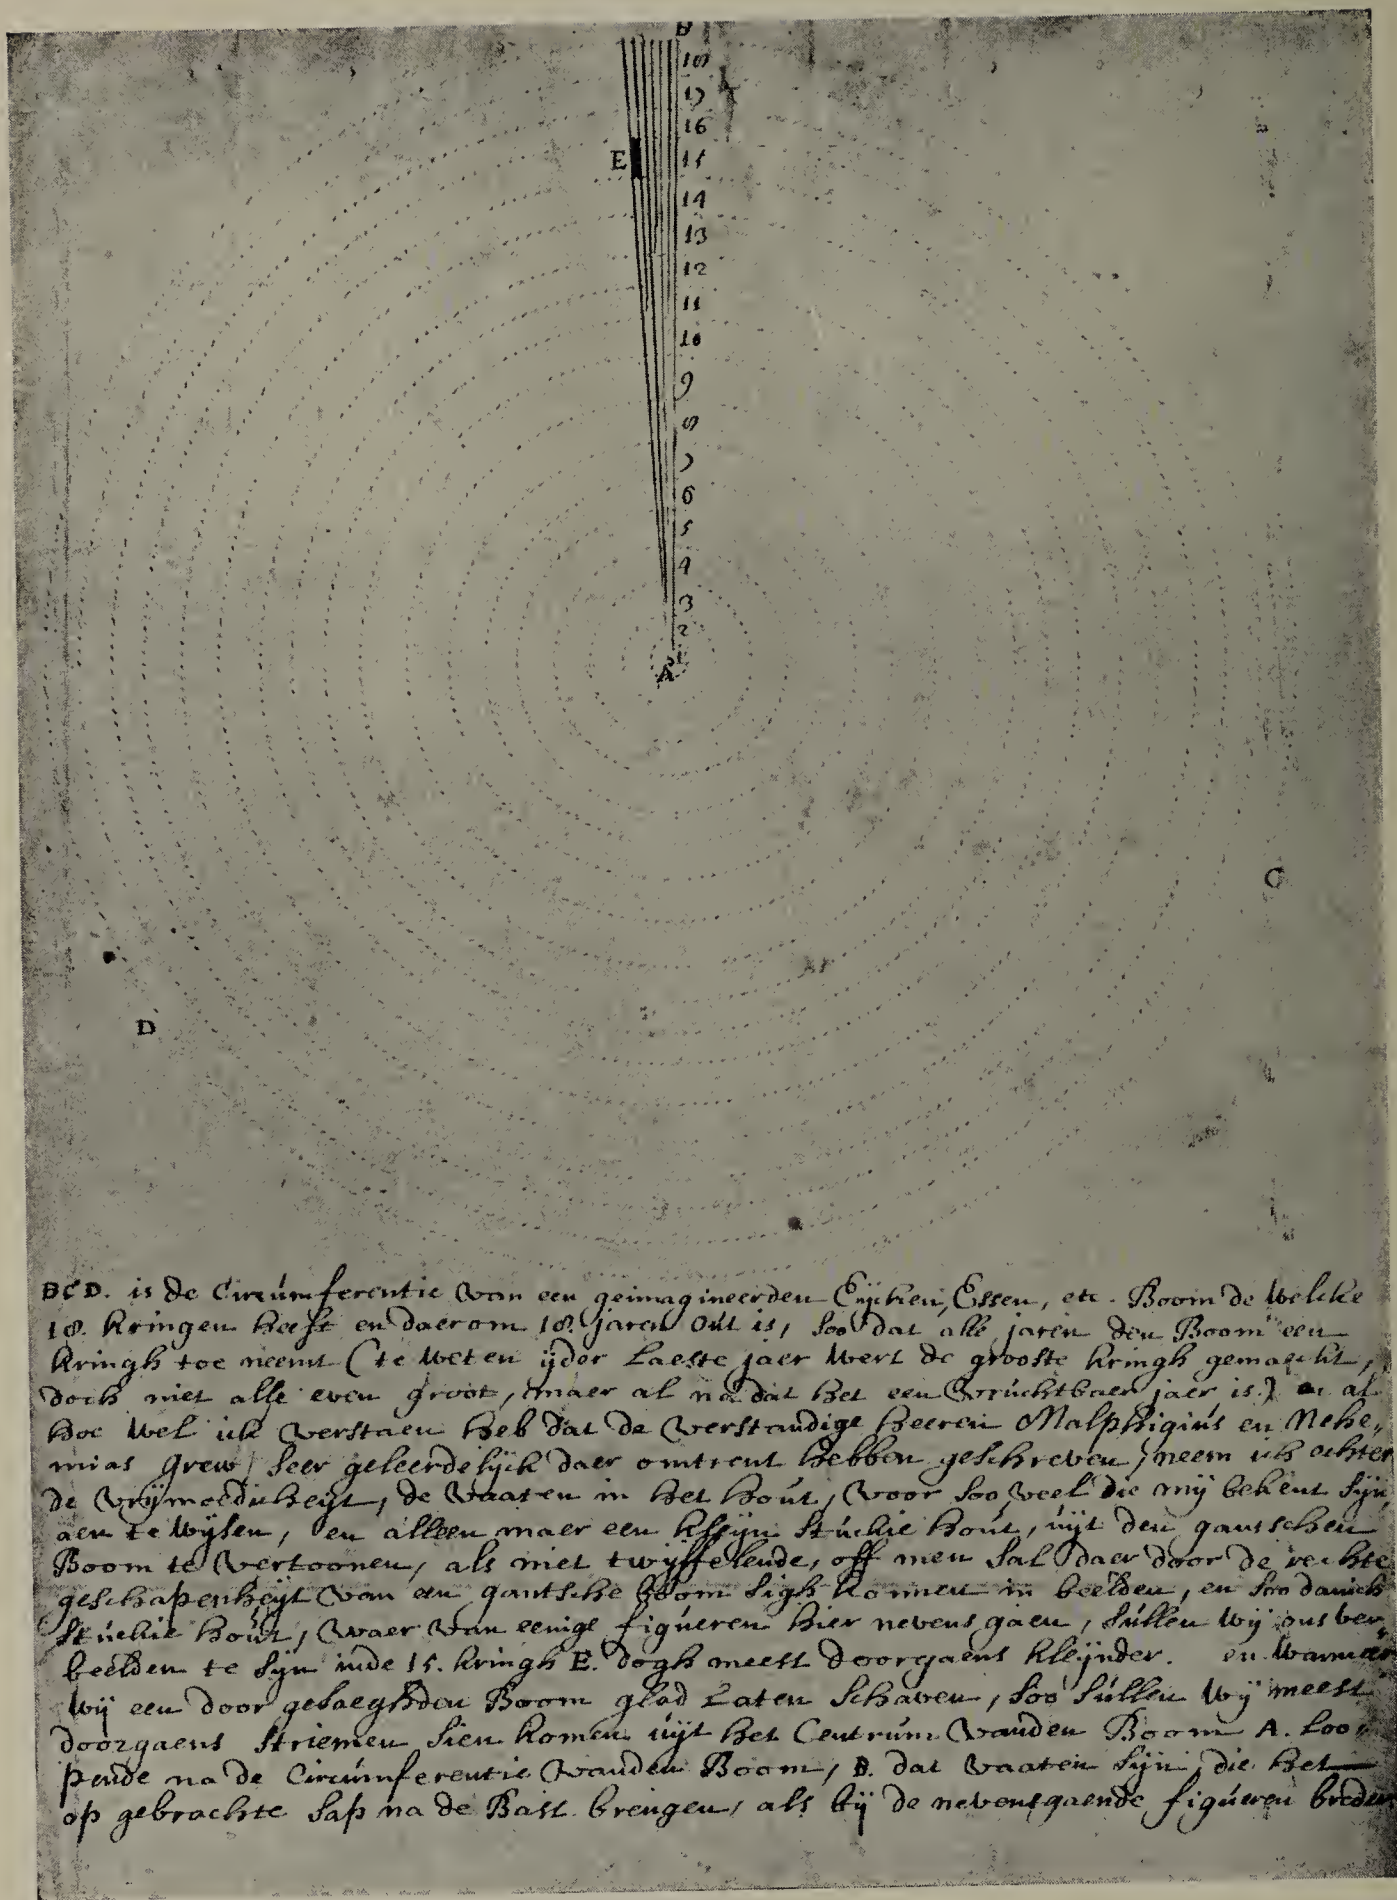 B
18
17
16
E 15
14
13
12
11
10
9
8
7
6
5
4
3
2
1
A
C
D
BCD. is de Circúmferentie van een geimagineerden Eijcken, Essen, etc. Boom de welcke
18. kringen heeft en daerom 18. jaren oút is, soo dat alle jaren den Boom een
kringh toe neemt (te weten ijder laeste jaer wert de grooste kringh gemaeckt,
doch niet alle even groot, maer al na dat het een vrúchtbaer jaer is.) en al
hoe wel ick verstaen heb dat de verstandige heeren Malphigiús en Nehe„
mias Grew, seer geleerdelijck daer omtrent hebben geschreven, neem ick echter
de vrijmoedicheijt, de vaaten in het hout, voor soo veel die mij bekent sijn,
aen te wijsen, en alleen maer een kleijn stúckie hout, úijt den gantschen
Boom te vertoonen, als niet twijffelende, off men sal daer door de rechte
geschapenheijt van een gantsche boom sigh konnen in beelden, en soo danich
stúckie hoút, waer van eenige figúeren hier nevens gaen, súllen wij ons ver„
beelden te sijn inde 15. kringh E. dogh meest doorgaens kleijnder. en wanneer
wij een door gesaeghden Boom glad laten schaven, soo súllen wij meest
doorgaens striemen sien komen úijt het Centrúm vanden Boom A. loo„
pende na de Circúmferentie vanden Boom, B. dat vaaten sijn, die het
op gebrachte sap na de Bast brengen, als bij de nevensgaende figúeren breder